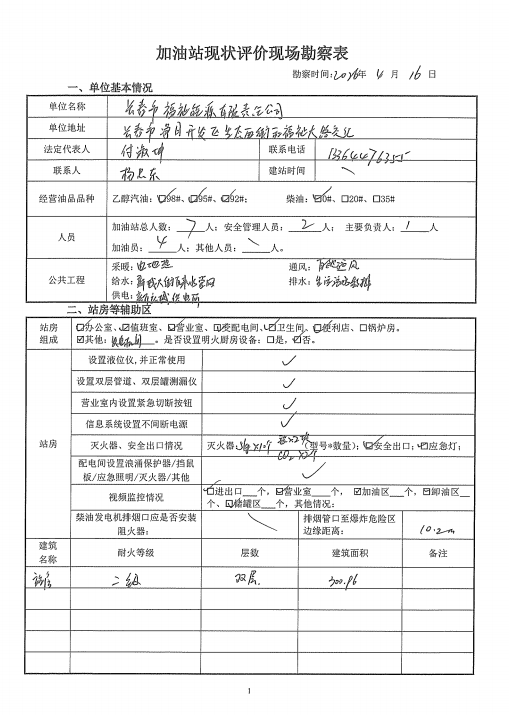 加油站现状评价现场勘察表
勘察时间:2016年 4 月 16 日
一、单位基本情况
单位名称 长春市福祉能源有限责任公司
单位地址 长春市净月开发区生态
法定代表人 付淑坤 联系电话 13364476355
联系人 杨忠东 建站时间 \
经营油品品种 乙醇汽油:☑98#、☑95#、☑92#; 柴油:☑0#、□20#、□35#
人员 加油站总人数: 7 人;安全管理人员: 2 人; 主要负责人: 1 人
加油员: 4 人;其他人员: \ 人。
公共工程 采暖:电地热 通风:自然通风
给水: 排水:
供电:供电所
二、站房等辅助区
站房组成 ☑办公室、☑值班室、☑营业室、☑变配电间、☑卫生间、☑便利店、□锅炉房。
☑其他: 。是否设置明火厨房设备:□是,☑否。
站房 设置液位仪,并正常使用 ✓
设置双层管道、双层罐测漏仪 ✓
营业室内设置紧急切断按钮 ✓
信息系统设置不间断电源 ✓
灭火器、安全出口情况 灭火器: (型号*数量);☑安全出口;☑应急灯;
CO2×2个
配电间设置浪涌保护器/挡鼠
板/应急照明/灭火器/其他 ✓
视频监控情况 ☑进出口 个,☑营业室 个, ☑加油区 个,☑卸油区
个、☑储罐区 个,其他情况:
柴油发电机排烟口应是否安装
阻火器: \ 排烟管口至爆炸危险区
边缘距离: 10.2m
建筑名称 耐火等级 层数 建筑面积 备注
站房 二级 双层 300.96
1